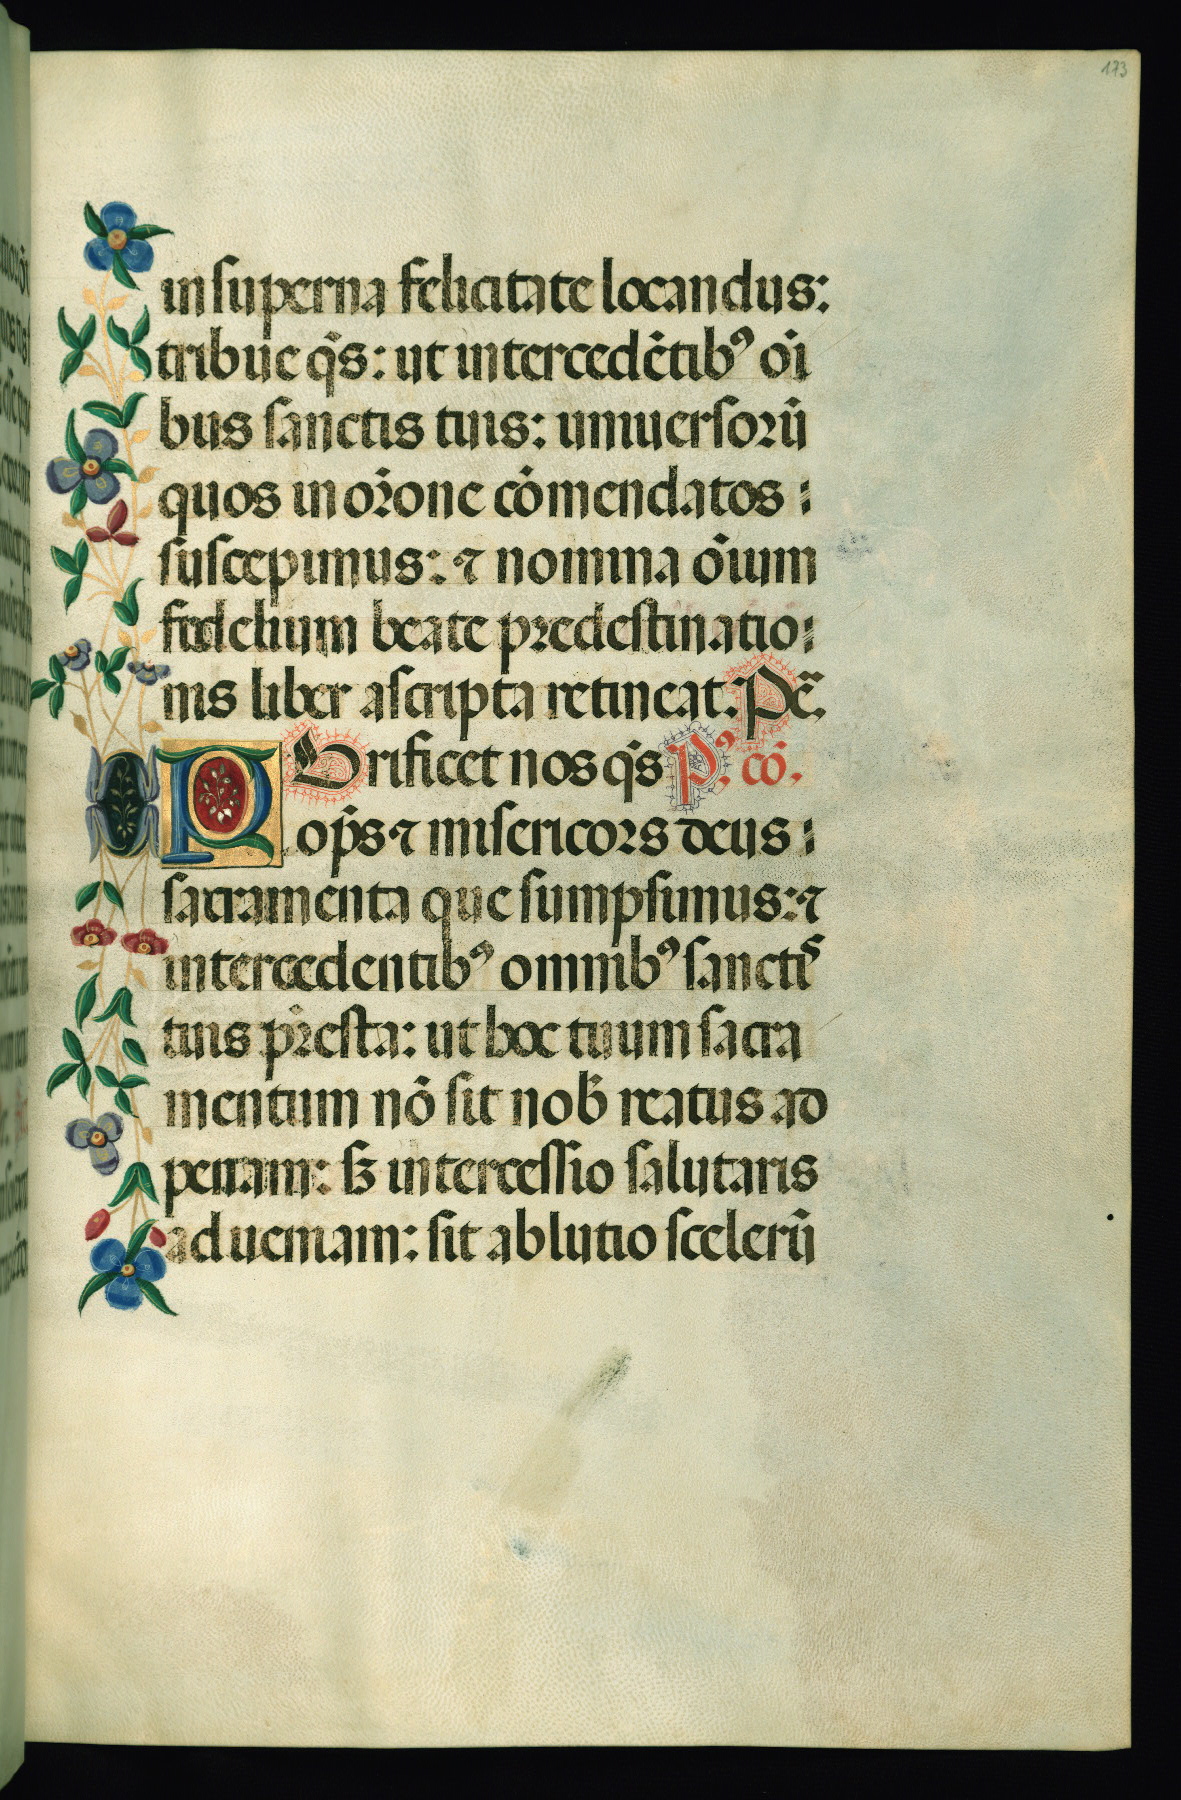 173
in superna felicitate locandus:
tribue q̃s: ut intercedẽtibꝰ oı̃
bus sanctis tuis: uniuersorũ
quos in or̃one cõmendatos :
suscepimus: ⁊ nomina õium
fidelium beate predestinatio:
nis liber ascripta retineat. Pẽ.
Purificet nos q̃s P.º cõ.
op̃s ⁊ misericors deus :
sacramenta que sumpsimus: ⁊
intercedentibꝰ omnibꝰ sanctis
tuis pr̃esta: ut hoc tuum sacra
mentum nõ sit nob̃ reatus ad
penam: sꝫ intercessio salutaris
ad ueniam: sit ablutio scelerũ